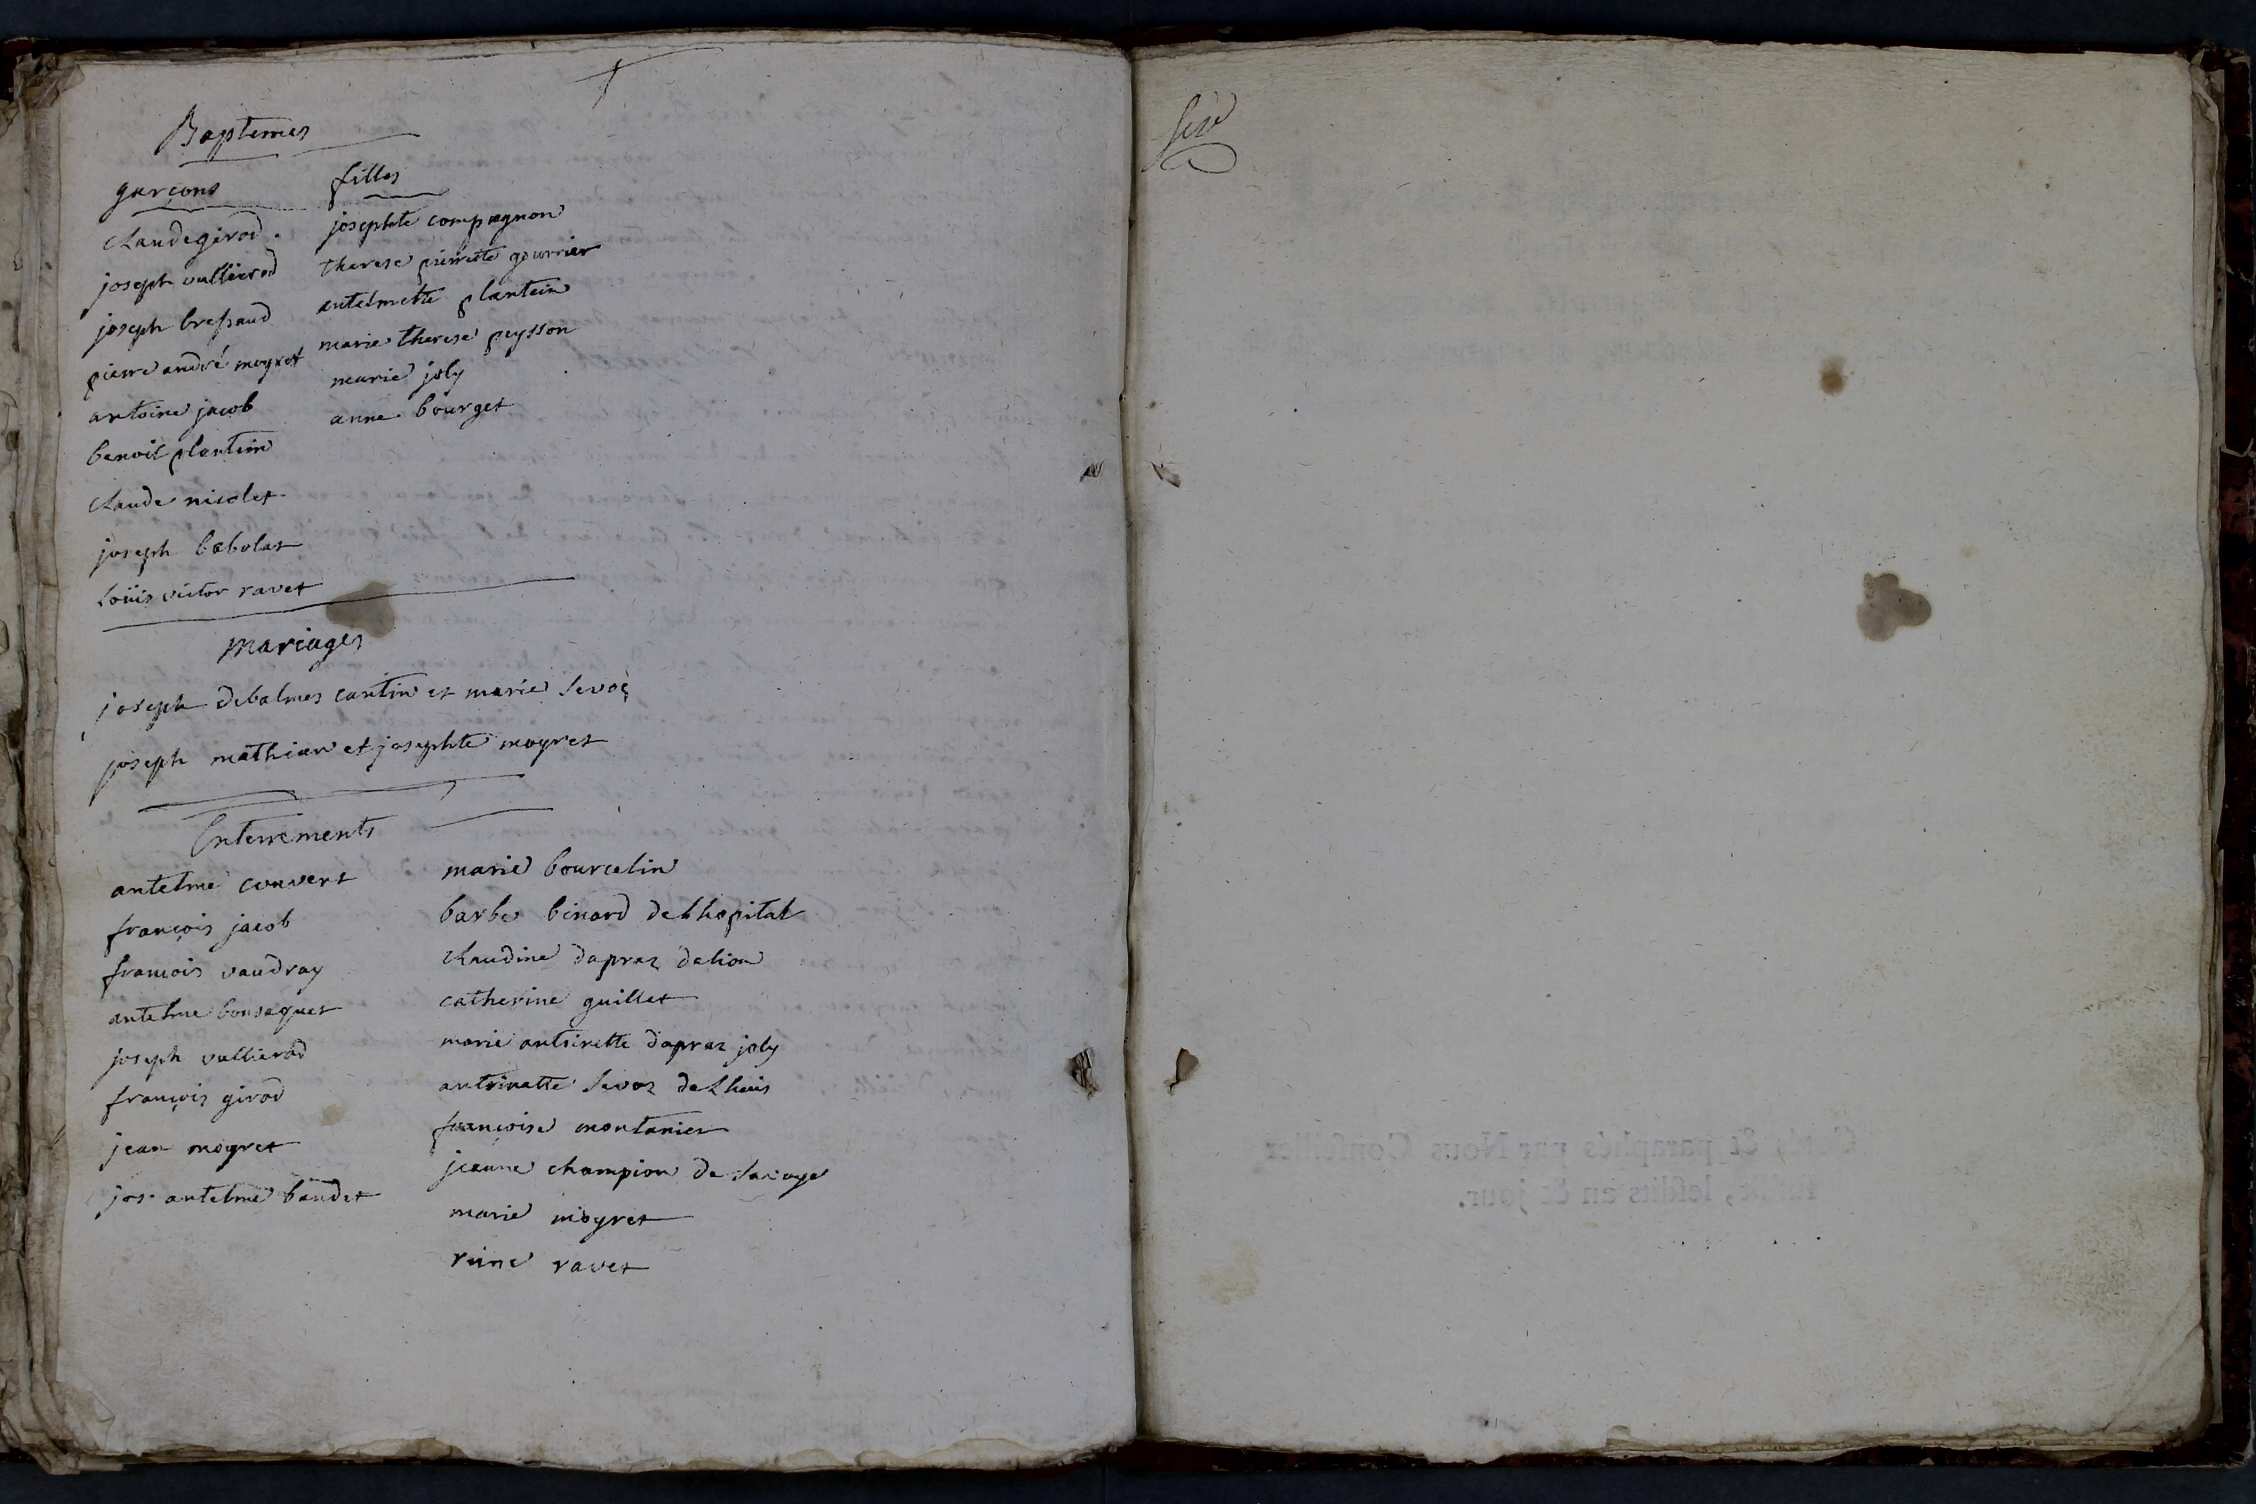 Baptemes
garçons
claude girod
joseph vullierod
joseph bressaud
pierre andré moyret
antoine jacob
benoit plantin
claude nicolet
joseph babolat
Loüis victor ravet
filles
josephte compagnon
therese pierrette gourrier
antelmette plantein
marie therese peysson
marie joly
anne bourget
mariages
joseph debalmes cantin et marie sevoz
joseph mathian et josephte moyret
Enterrements
antelme convert
françois jacob
françois vaudray
antelme bousequet
joseph vullierod
françois girod
jean moyret
jos antelme baudet
marie bourcelin
barbe binard de Lhopital
claudine dapraz delion
catherine guillet
marie antoinette dapraz joly
antoinette sevoz de Lhuis
françoise montanier
jeanne champion de
marie moyret
reine ravet
Cotés & paraphés par Nous Conseiller
susdit, lesdits an & jour.